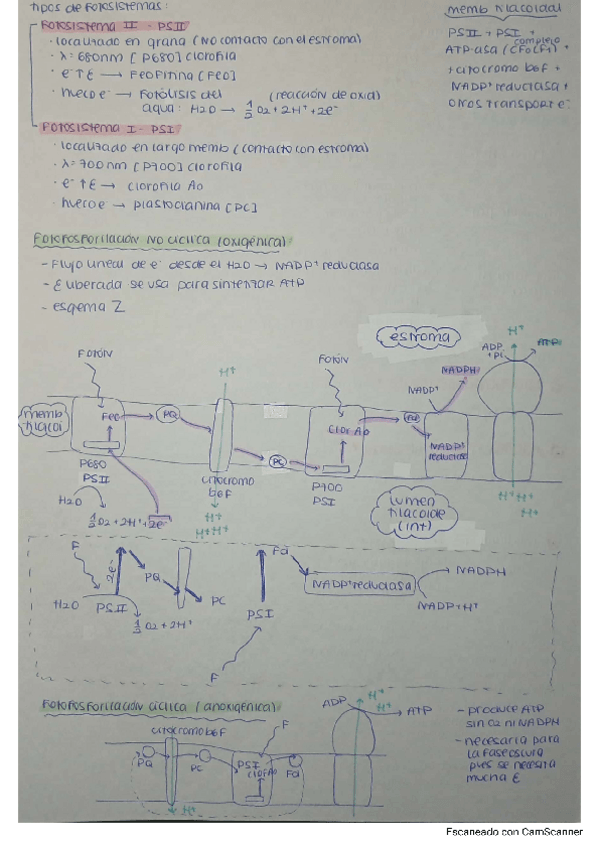 Tipos de Fotosistemas:
Fotosistema II - PSII
· localizado en grana (No contacto con el estroma)
· λ = 680nm [P680] clorofila
· e⁻ ↑ E → Feofitina [Feo]
· hueco e⁻ → Fotólisis del (reacción de oxid)
agua: H2O → ½ O2 + 2H⁺ + 2e⁻
Fotosistema I - PSI
· localizado en largo memb (contacto con estroma)
· λ = 700nm [P700] clorofila
· e⁻ ↑ E → clorofila A0
· hueco e⁻ → plastocianina [PC]
memb tilacoidal
PSII + PSI +
complejo
ATP-asa (CF0CF1) +
+ citocromo b6F +
NADP⁺ reductasa +
otros transport e⁻
Fotofosforilación No cíclica (oxigénica)
- Flujo lineal de e⁻ desde el H2O → NADP⁺ reductasa
- E liberada se usa para sintetizar ATP
- esqema Z
estroma
H⁺
ADP + Pi
ATP
Fotón
H⁺
Fotón
NADPH
NADP⁺
memb tilacoi
Feo
PQ
Clor A0
Fd
NADP⁺ reductasa
P680
PSII
citocromo b6F
PC
P700
PSI
H⁺ H⁺
H⁺
H2O
½ O2 + 2H⁺ + 2e⁻
H⁺
H⁺ H⁺
lumen tilacoide (int)
F
2e⁻
PQ
Fd
NADP⁺ reductasa
NADPH
H2O
PSII
PC
PSI
NADP + H⁺
½ O2 + 2H⁺
F
Fotofosforilación cíclica (anoxigénica)
ADP
H⁺
H⁺
ATP
- produce ATP
sin O2 ni NADPH
- necesaria para
la fase oscura
pues se necesita
mucha E
citocromo b6F
F
PQ
PC
PSI
clor A0
Fd
H⁺
Escaneado con CamScanner